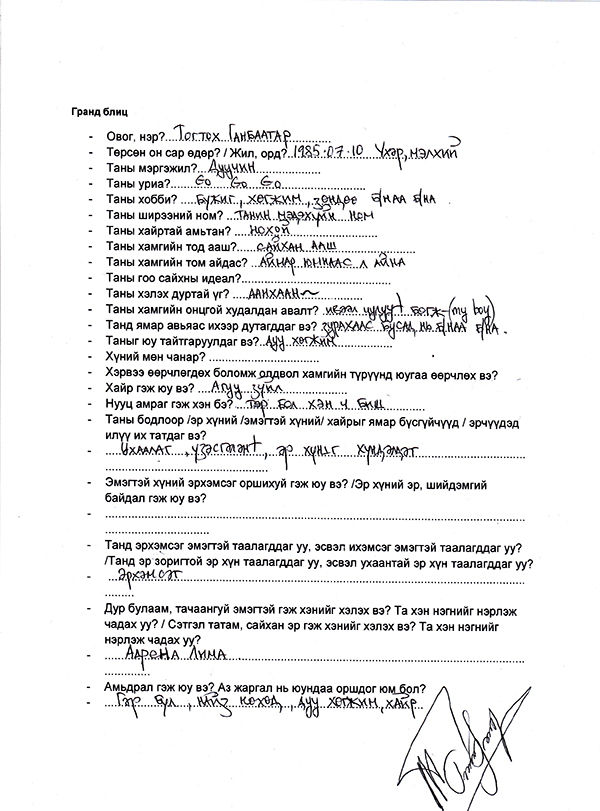 Гранд блиц
- Овог, нэр? Тогтох Ганбаатар
- Төрсөн он сар өдөр? / Жил, орд? 1985.07.10 Үхэр, мэлхий
- Таны мэргэжил? Дуучин
- Таны уриа? Go Go Go
- Таны хобби? Бүжиг, хөгжим, зөндөө бнаа бна
- Таны ширээний ном? Танин мэдэхүйн ном
- Таны хайртай амьтан? Нохой
- Таны хамгийн тод ааш? Сайхан ааш
- Таны хамгийн том айдас? Аймар юмнаас л айна
- Таны гоо сайхны идеал?
- Таны хэлэх дуртай үг? Аанхаан~
- Таны хамгийн онцгой худалдан авалт? чулуут бөгж (my boy)
- Танд ямар авьяас ихээр дутагддаг вэ? Зурахаас бусад нь бнаа бна.
- Таныг юу тайтгаруулдаг вэ? Дуу хөгжим
- Хүний мөн чанар?
- Хэрвээ өөрчлөгдөх боломж олдвол хамгийн түрүүнд юугаа өөрчлөх вэ?
- Хайр гэж юу вэ? Агуу зүйл
- Нууц амраг гэж хэн бэ? Тэр бол хэн ч биш
- Таны бодлоор /эр хүний /эмэгтэй хүний/ хайрыг ямар бүсгүйчүүд / эрчүүдэд
илүү их татдаг вэ?
- Ухаалаг, үзэсгэлэнт, эр хүнийг хүндэлдэг
- Эмэгтэй хүний эрхэмсэг оршихуй гэж юу вэ? /Эр хүний эр, шийдэмгий
байдал гэж юу вэ?
-
- Танд эрхэмсэг эмэгтэй таалагддаг уу, эсвэл ихэмсэг эмэгтэй таалагддаг уу?
/Танд эр зоригтой эр хүн таалагддаг уу, эсвэл ухаантай эр хүн таалагддаг уу?
- Эрхэмсэг
- Дур булаам, тачаангуй эмэгтэй гэж хэнийг хэлэх вэ? Та хэн нэгнийг нэрлэж
чадах уу? / Сэтгэл татам, сайхан эр гэж хэнийг хэлэх вэ? Та хэн нэгнийг
нэрлэж чадах уу?
- Адрена Лима
- Амьдрал гэж юу вэ? Аз жаргал нь юундаа оршдог юм бол?
- Гэр бүл, найз нөхөд, дуу хөгжим, хайр